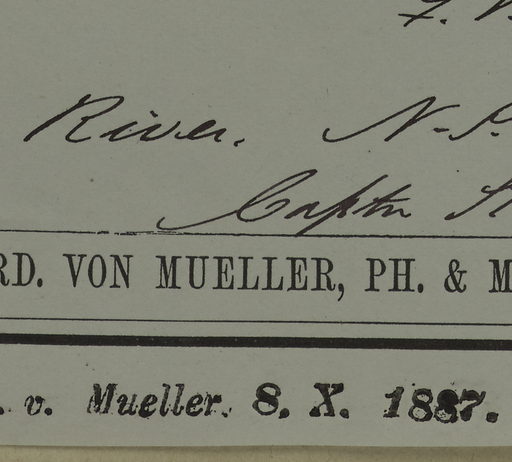 F.
River. N. S.
Captn
RD. VON MUELLER, PH. & M
. v. Mueller. 8. X. 1887.